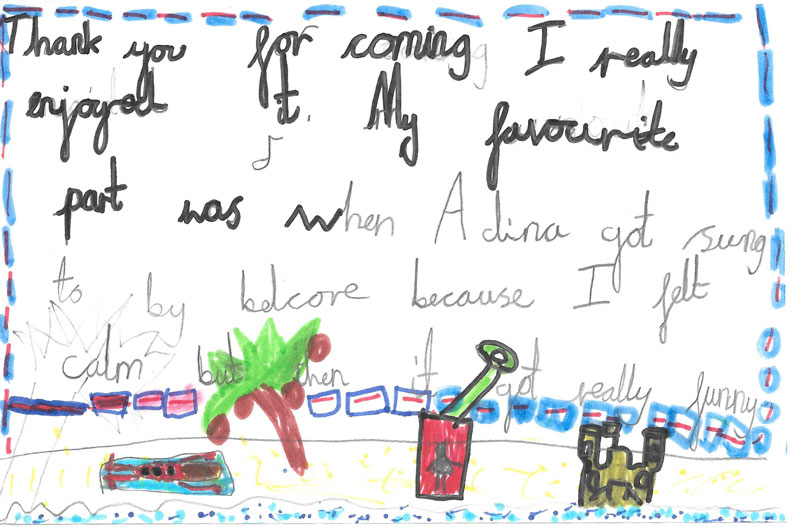 Thank you for coming I really
enjoyed it. My favourite
part was when Adina got sung
to by belcore because I felt
calm but then it got really funny